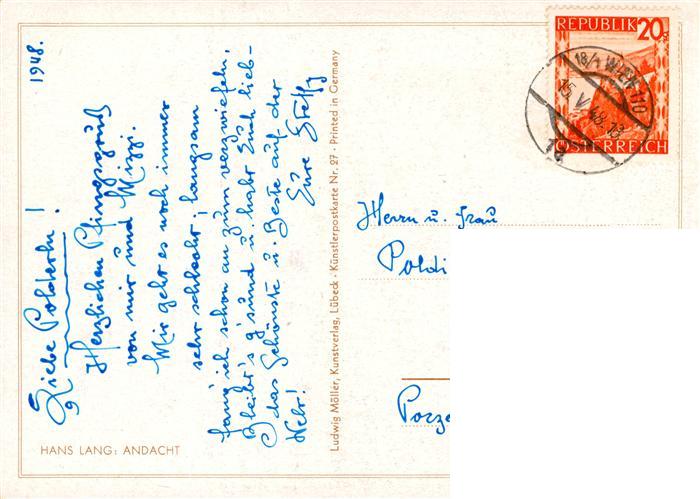 1948.
Liebe Polderln!
Herzlichen Pfingstgruß
von mir und Mizzi.
Mir geht es noch immer
sehr schlecht, langsam
fang' ich schon an zum verzweifeln,
Bleibt's g'sund u. habt Euch lieb-
das Schönste u. Beste auf der
Welt!
Eure Steffy
HANS LANG: ANDACHT
Ludwig Möller, Kunstverlag, Lübeck · Künstlerpostkarte Nr. 27 · Printed in Germany
REPUBLIK 20
ÖSTERREICH
18/1 WIEN 110
15. V. 48. 13
Herrn u. Frau
Poldi
Porze